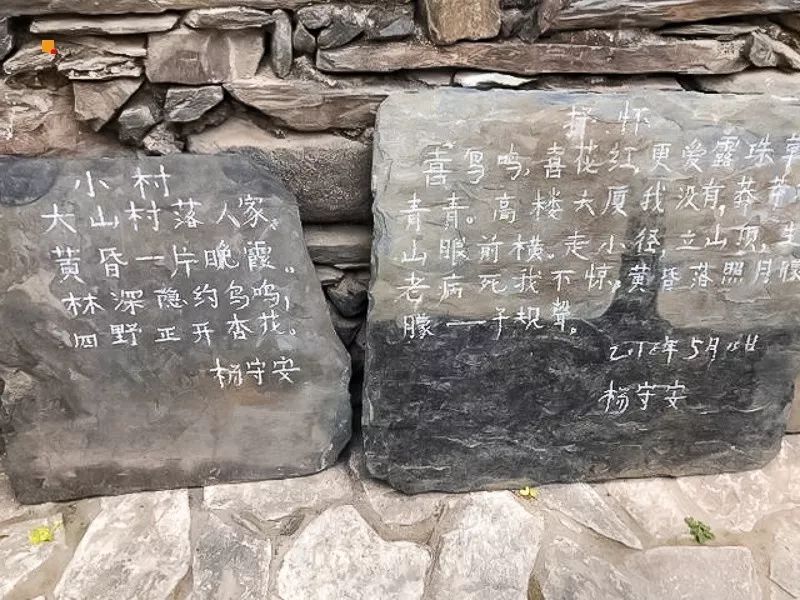 小村
大山村落人家。
黄昏一片晚霞。
林深隐约鸟鸣，
四野正开杏花。
杨守安
抒怀
喜鸟鸣，喜花红，更爱露珠草
青青。高楼大厦我没有，莽莽
山眼前横。走小径，立山顶，生
老病死我不惊。黄昏落照月朦
朦一一子规聲。
杨守安